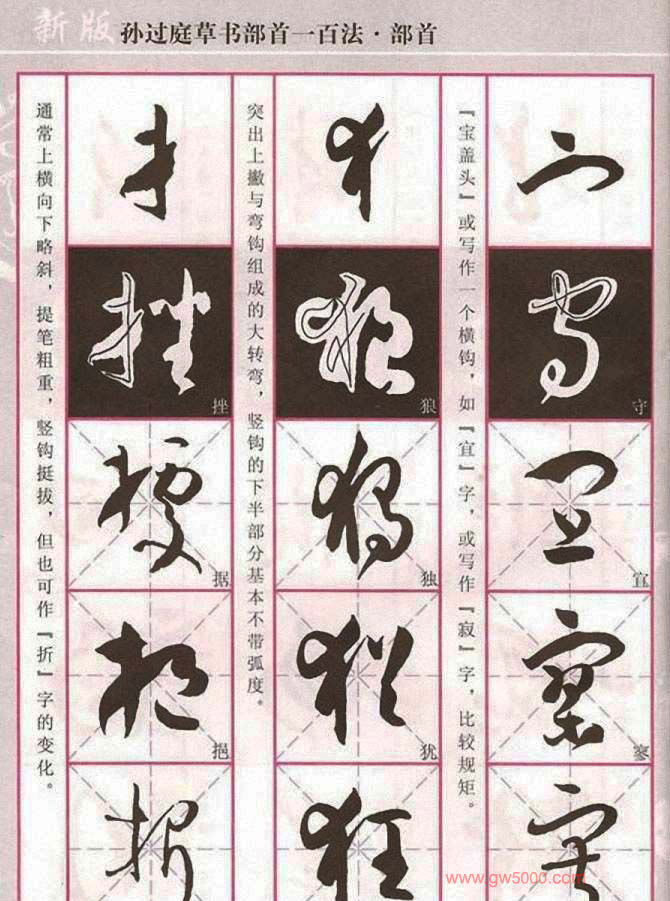 新版 孙过庭草书部首一百法·部首
守
宜
寥
『宝盖头』或写作一个横钩，如『宜』字，或写作『寂』字，比较规矩。
狼
独
犹
狂
突出上撇与弯钩组成的大转弯，竖钩的下半部分基本不带弧度。
挫
据
挹
折
通常上横向下略斜，提笔粗重，竖钩挺拔，但也可作『折』字的变化。
www.gw5000.com